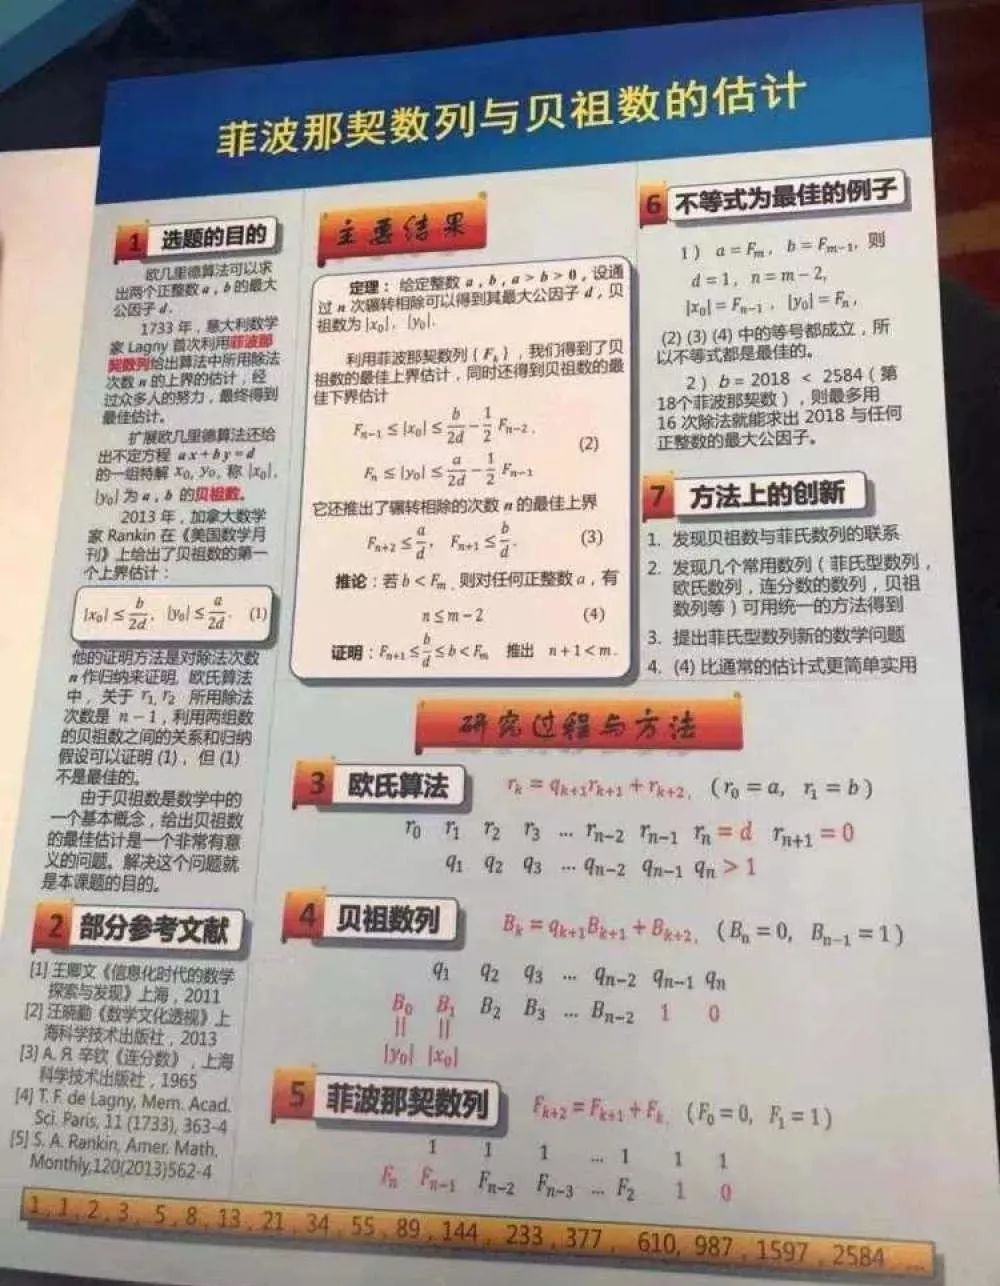 菲波那契数列与贝祖数的估计
1 选题的目的
欧几里德算法可以求
出两个正整数 a , b 的最大
公因子 d .
1733 年，意大利数学
家 Lagny 首次利用菲波那
契数列给出算法中所用除法
次数 n 的上界的估计，经
过众多人的努力，最终得到
最佳估计。
扩展欧几里德算法还给
出不定方程 a x + b y = d
的一组特解 x₀, y₀, 称 |x₀|,
|y₀| 为 a , b 的贝祖数。
2013 年，加拿大数学
家 Rankin 在《美国数学月
刊》上给出了贝祖数的第一
个上界估计：
|x₀| ≤ b/2d, |y₀| ≤ a/2d. (1)
他的证明方法是对除法次数
n 作归纳来证明, 欧氏算法
中，关于 r₁, r₂ 所用除法
次数是 n − 1，利用两组数
的贝祖数之间的关系和归纳
假设可以证明 (1)，但 (1)
不是最佳的。
由于贝祖数是数学中的
一个基本概念，给出贝祖数
的最佳估计是一个非常有意
义的问题。解决这个问题就
是本课题的目的。
2 部分参考文献
[1] 王卿文《信息化时代的数学
探索与发现》上海，2011
[2] 汪晓勤《数学文化透视》上
海科学技术出版社，2013
[3] А. Я. 辛钦《连分数》，上海
科学技术出版社，1965
[4] T. F. de Lagny, Mem. Acad.
Sci. Paris, 11 (1733), 363-4
[5] S. A. Rankin, Amer. Math.
Monthly,120(2013)562-4
主要结果
定理：给定整数 a , b , a > b > 0，设通
过 n 次辗转相除可以得到其最大公因子 d，贝
祖数为 |x₀|, |y₀|.
利用菲波那契数列 { Fₖ }，我们得到了贝
祖数的最佳上界估计，同时还得到贝祖数的最
佳下界估计
Fₙ₋₁ ≤ |x₀| ≤ b/2d − 1/2 Fₙ₋₂ ,
(2)
Fₙ ≤ |y₀| ≤ a/2d − 1/2 Fₙ₋₁
它还推出了辗转相除的次数 n 的最佳上界
Fₙ₊₂ ≤ a/d, Fₙ₊₁ ≤ b/d. (3)
推论：若 b < Fₘ , 则对任何正整数 a，有
n ≤ m − 2 (4)
证明：Fₙ₊₁ ≤ b/d ≤ b < Fₘ 推出 n + 1 < m .
6 不等式为最佳的例子
1 ) a = Fₘ , b = Fₘ₋₁, 则
d = 1, n = m − 2,
|x₀| = Fₙ₋₁ , |y₀| = Fₙ ,
(2) (3) (4) 中的等号都成立，所
以不等式都是最佳的。
2 ) b = 2018 < 2584 ( 第
18个菲波那契数 )，则最多用
16 次除法就能求出 2018 与任何
正整数的最大公因子。
7 方法上的创新
1. 发现贝祖数与菲氏数列的联系
2. 发现几个常用数列 ( 菲氏型数列，
欧氏数列，连分数的数列，贝祖
数列等 ) 可用统一的方法得到
3. 提出菲氏型数列新的数学问题
4. (4) 比通常的估计式更简单实用
研究过程与方法
3 欧氏算法 rₖ = qₖ₊₁rₖ₊₁ + rₖ₊₂, ( r₀ = a, r₁ = b )
r₀ r₁ r₂ r₃ ... rₙ₋₂ rₙ₋₁ rₙ = d rₙ₊₁ = 0
q₁ q₂ q₃ ... qₙ₋₂ qₙ₋₁ qₙ > 1
4 贝祖数列 Bₖ = qₖ₊₁Bₖ₊₁ + Bₖ₊₂, ( Bₙ = 0, Bₙ₋₁ = 1 )
q₁ q₂ q₃ ... qₙ₋₂ qₙ₋₁ qₙ
B₀ B₁ B₂ B₃ ... Bₙ₋₂ 1 0
|| ||
|y₀| |x₀|
5 菲波那契数列 Fₖ₊₂ = Fₖ₊₁ + Fₖ, ( F₀ = 0, F₁ = 1 )
1 1 1 ... 1 1 1
Fₙ Fₙ₋₁ Fₙ₋₂ Fₙ₋₃ ... F₂ 1 0
1 , 1 , 2 , 3 , 5 , 8 , 13 , 21 , 34 , 55 , 89 , 144 , 233 , 377 , 610, 987 , 1597 , 2584 ...